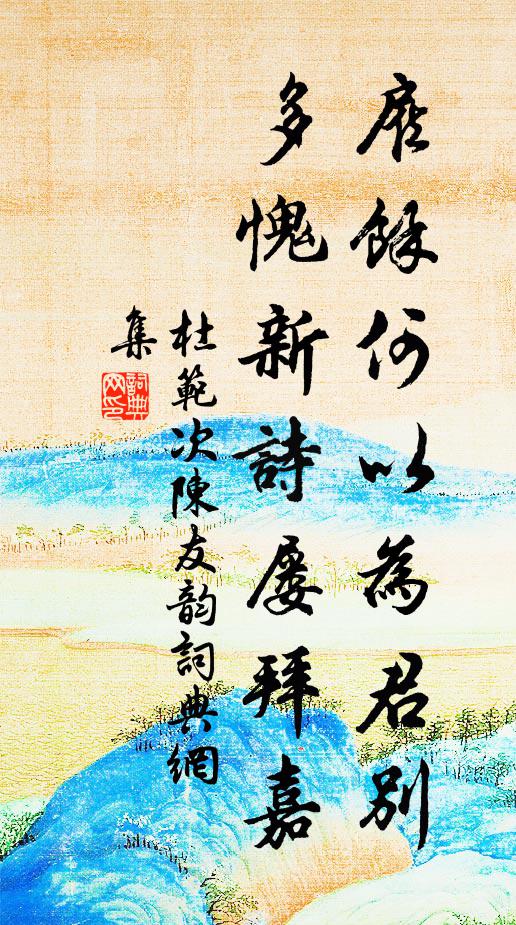 餘何以為君別
多愧新詩屢拜嘉
杜範次陳友韵詞典網
集
詞典
网印